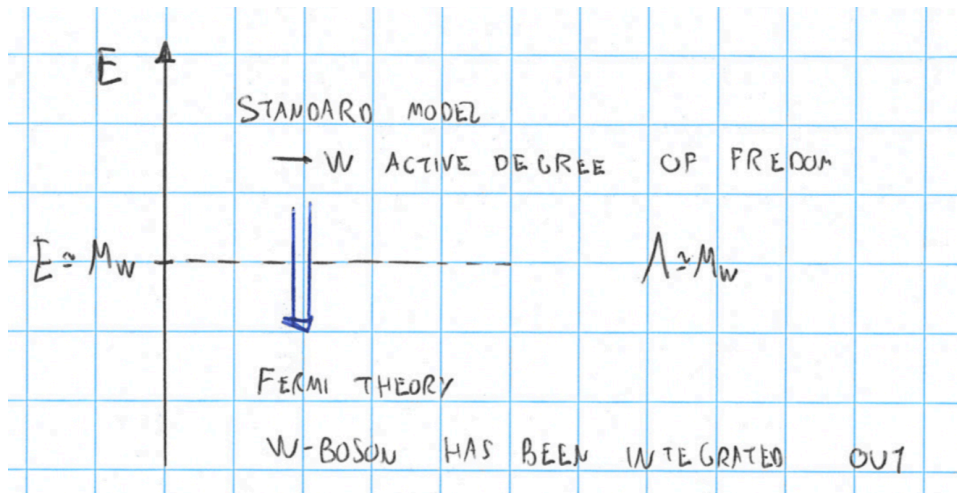 E
STANDARD MODEL
→ W ACTIVE DEGREE OF FREDOM
E ≃ MW Λ ≃ MW
FERMI THEORY
W-BOSON HAS BEEN INTEGRATED OUT